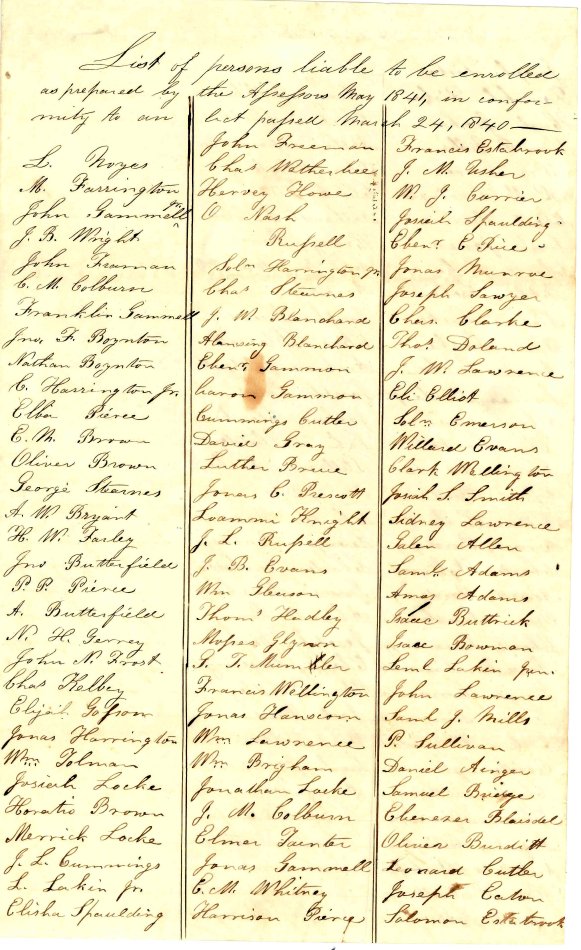 List of persons liable to be enrolled
as prepared by the Assessors May 1841, in confor-
mity to an Act passed March 24, 1840—
L. Noyes
M. Farrington
John Gammell Jr.
J. B. Wright
John Freeman
C. M. Colburn
Franklin Gammell
Jno. F. Boynton
Nathan Boynton
C. Harrington Jr.
Elba Pierce
E. M. Brown
Oliver Brown
George Stearnes
A. W. Bryant
H. W. Farley
Jno Butterfield
P. P. Pierce
A. Butterfield
N. H. Gerrey
John N. Frost
Chas Kelbey
Elijah
Jonas Harrington
Wm. Tolman
Josiah Locke
Horatio Brown
Merrick Locke
J. L. Cummings
L. Lakin Jr.
Elisha Spaulding
John Freeman
Chas Wetherbee
Hervey Howe
O Nash
Russell
Soln Harrington Jr
Chas Stearnes
J. W. Blanchard
Blanchard
Ebenr. Gammon
Aaron Gammon
Cummings Cutler
David Gray
Luther
Jonas C. Prescott
Loammi Knight
J. L. Russell
J. B. Evans
Wm Gleason
Thoms Hadley
Moses Glynn
S. T.
Francis Wellington
Jonas Hanscom
Wm Lawrence
Wm Brigham
Jonathan Locke
J. M. Colburn
Elmer Tainter
Jonas Gammell
E. M. Whitney
Harrison Pierce
Francis Estabrook
J. M. Usher
W. J. Currier
Josiah Spaulding
Ebenr E. Rice
Jonas Munroe
Joseph Sawyer
Chas. Clarke
Thos. Doland
J. W. Lawrence
Eli Elliot
Soln Emerson
Willard Evans
Clark Wellington
Josiah S. Smith
Sidney Lawrence
Galen Allen
Saml. Adams
Amos Adams
Isaac Buttrick
Isaac Bowman
Saml Lakin Jun.
John Lawrence
Saml J. Mills
P. Sullivan
Daniel Ainger
Samuel
Ebenezer Blaisdel
Oliver Burditt
Leonard Cutler
Joseph Caton
Solomon Estabrook